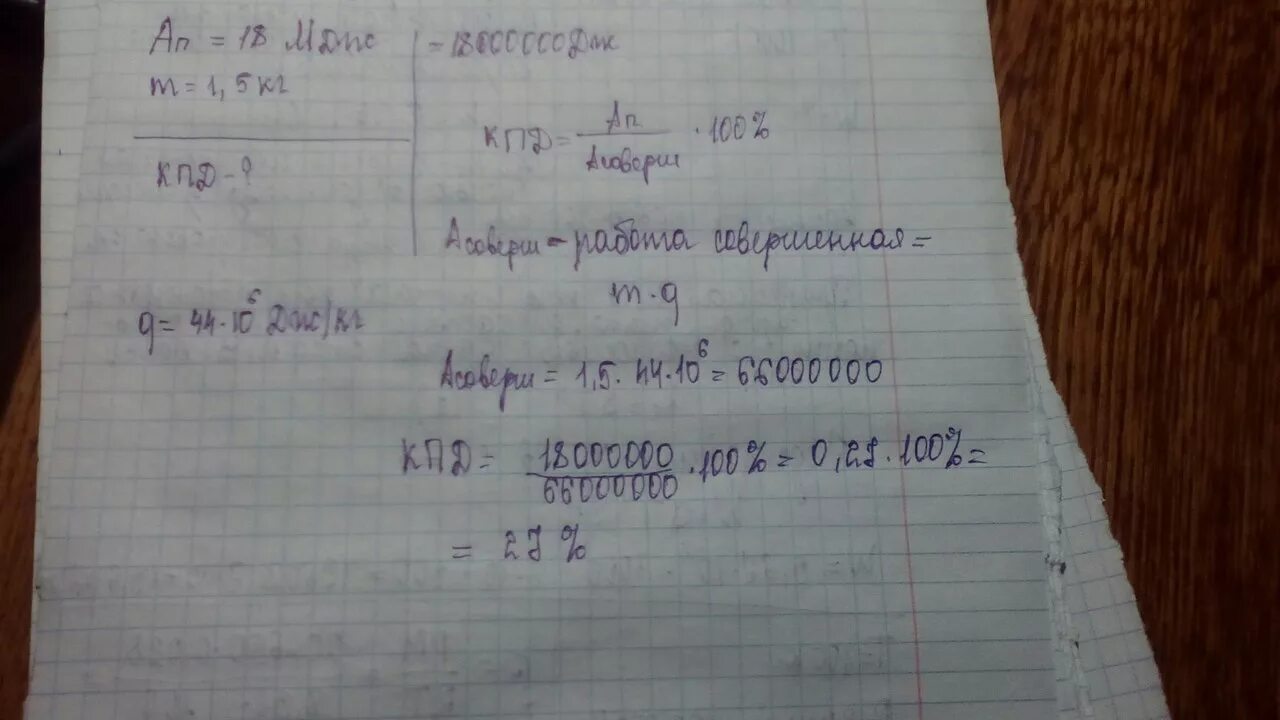 Ап = 18 МДж = 18000000Дж
m = 1,5 кг
КПД = Ап / Асоверш · 100%
КПД - ?
Асоверш - работа совершенная =
m · q
q = 44·10⁶ Дж/кг
Асоверш = 1,5 · 44·10⁶ = 66000000
КПД = 18000000 / 66000000 · 100% = 0,27 · 100% =
= 27 %